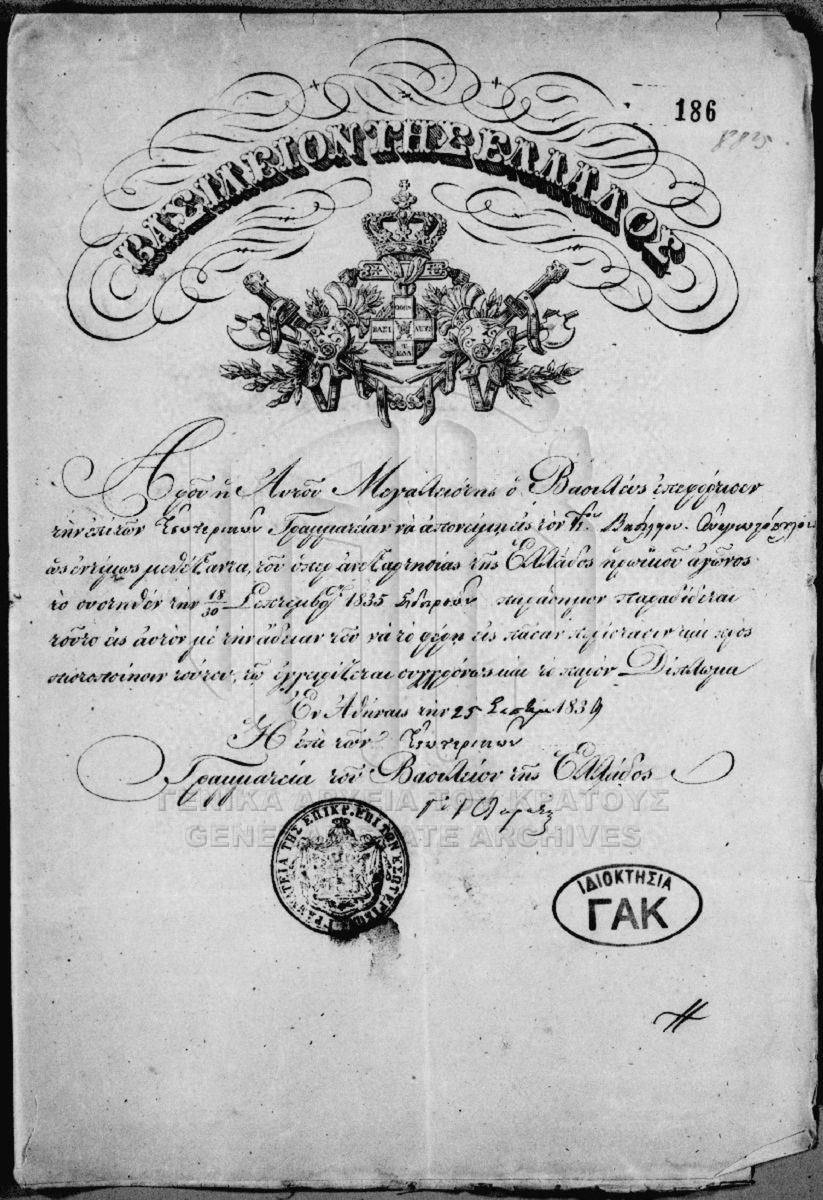 186
1835
ΒΑΣΙΛΕΙΟΝ ΤΗΣ ΕΛΛΑΔΟΣ
ΟΘΩΝ
ΒΑΣΙ ΛΕΥΣ
Τ
ΕΛΛ
Ἀφοῦ ἡ Αὐτοῦ Μεγαλειότης ὁ Βασιλεὺς ἐπεφόρτισεν
τὴν ἐπὶ τῶν Ἐσωτερικῶν Γραμματείαν νὰ ἀπονείμῃ εἰς τὸν Κον Βασίλειον
ὡς ἐντίμως μεθέξαντα, τοῦ ὑπὲρ ἀνεξαρτησίας τῆς Ἑλλάδος ἡρωϊκοῦ ἀγῶνος
τὸ συστηθὲν τὴν 18/30 Σεπτεμβρ. 1835 Σιδηροῦν παράσημον παραδίδεται
τοῦτο εἰς αὐτὸν μὲ τὴν ἄδειαν τοῦ νὰ τὸ φέρῃ εἰς πᾶσαν περίστασιν καὶ πρὸς
πιστοποίησιν τούτου, τῷ ἐγχειρίζεται συγχρόνως καὶ τὸ παρὸν Δίπλωμα
Ἐν Ἀθήναις τὴν 25 1839
Ἡ ἐπὶ τῶν Ἐσωτερικῶν
Γραμματεία τοῦ Βασιλείου τῆς Ἑλλάδος
ΓΕΝΙΚΑ ΑΡΧΕΙΑ ΤΟΥ ΚΡΑΤΟΥΣ
GENERAL STATE ARCHIVES
ΓΡΑΜΜΑΤΕΙΑ ΤΗΣ ΕΠΙΚΡ. ΕΠΙ ΤΩΝ ΕΣΩΤΕΡΙΚΩΝ
ΙΔΙΟΚΤΗΣΙΑ
ΓΑΚ